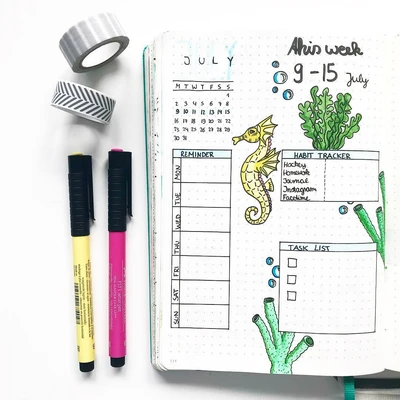 JULY
M T W T F S S
1
2 3 4 5 6 7 8
9 10 11 12 13 14 15
16 17 18 19 20 21 22
23 24 25 26 27 28 29
30 31
REMINDER
MON
TUE
WED
THU
FRI
SAT
SUN
This week
9 - 15 July
HABIT TRACKER
Hockey
Homework
Journal
Instagram
Facetime
TASK LIST